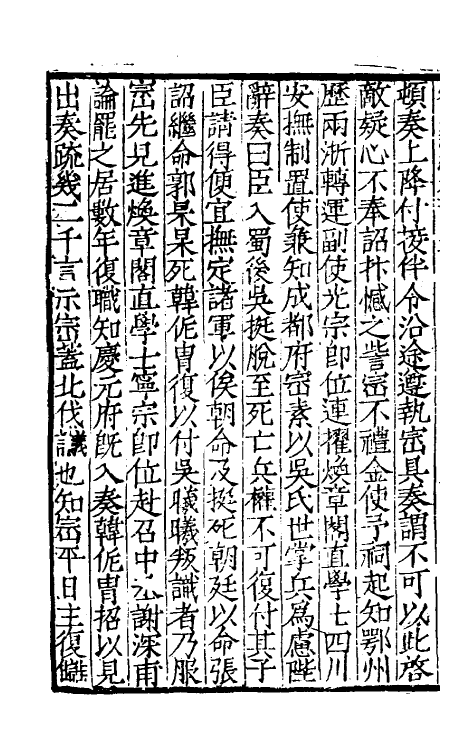 頓奏上降付接伴令沿途遵執崈具奏謂不可以此啓
敵疑心不奉詔抃憾之訾崈不禮金使予祠起知鄂州
歷兩淅轉運副使光宗即位連擢煥章閣直學士四川
安撫制置使兼知成都府崈素以吳氏世掌兵爲慮陛
辭奏曰臣入蜀後吳挺脫至死亡兵權不可復付其子
臣請得便宜撫定諸軍以俟朝命及挺死朝廷以命張
詔繼命郭杲杲死韓侂冑復以付吳曦曦叛識者乃服
崈先見進煥章閣直學士寧宗卽位赴召中丞謝深甫
論罷之居數年復職知慶元府旣入奏韓侂冑招以見
出奏疏幾二千言示崈蓋北伐議也知崈平日主復讎